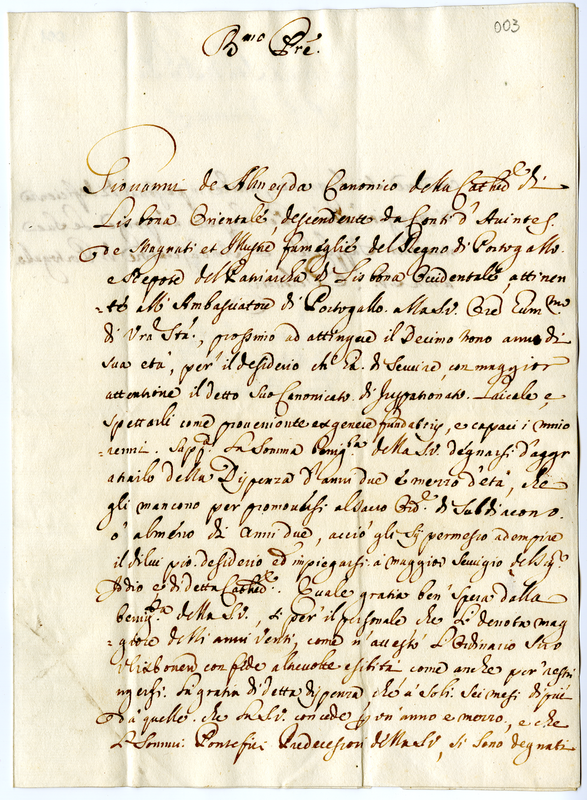 003
B.mo Pre.
Giovanni de Almeyda Canonico della Cathed.e di
Lisbona Orientale, descendente da Conti d'Avintes
de Magnati et Illustri fameglie del Regno di Portogallo.
e Nepote del Patriarcha di Lisbona Occidentale, attinen
te all'Ambasciatore di Portogallo. alla S.V.
di Vra Stà, prossimo ad attingere il Decimo nono anno di
sua età, per il desiderio che hà di Servire con maggior
attentione il detto Suo Canonicato di Juspatronato Laicale e,
spettarli come proveniente ex genere fundatoris, e
Supp.a la Somma benig.tà della S.V. degnarsi d'aggr
atiarlo della Dispenza d'anni due e mezzo d'età, che
gli mancono per promoversi al Sacro Ord.e di Subdiacono.
ò almeno di Anni due, acciò gli sij permesso adempire
il di lui pio desiderio ed impiegarsi à maggior servigio del Sig.e
Iddio e di detta Cathed.e Quale gratia ben spera dalla
benig.tà della S.V., si per il personale che Lo denota mag
giore delli anni venti, come n'attestò L'Ordinario Suo
Ulisbonen con fede alnevolte esibita come anche per restri
ngersi la gratia di detta dispenza che à Soli Sei mesi di più
d'quello che la S.V. concede p un'anno e mezzo, e che
li Sommi Pontefici Predecessori della S.V. si sono degnati